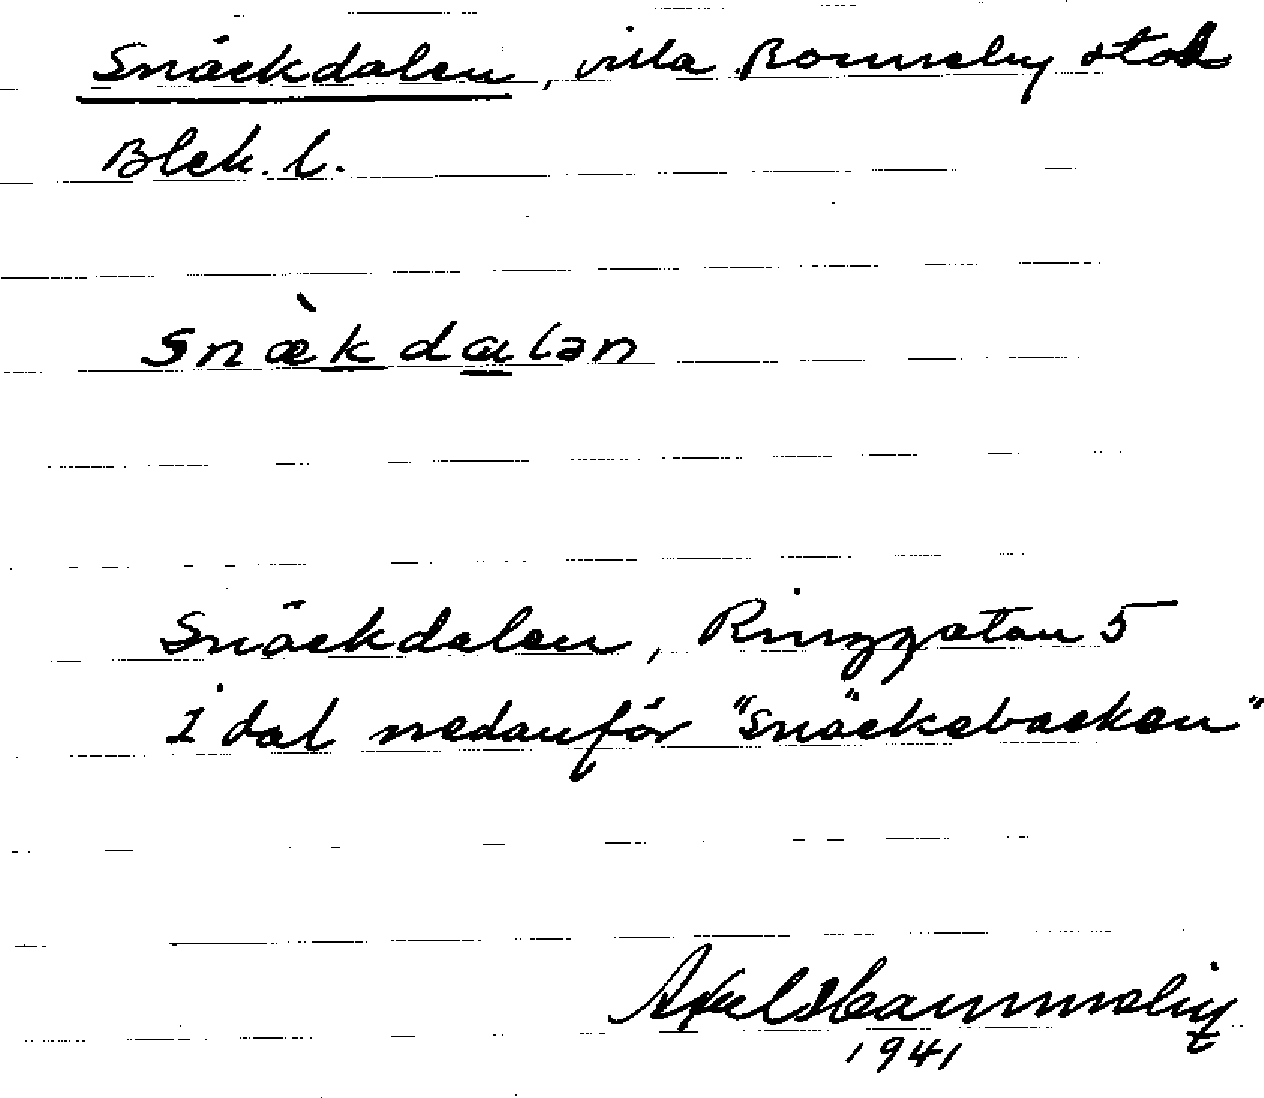 Snäckdalen, villa Ronneby stad
Blek. l.
snæ̀kdɑlən
Snäckdalen, Ringgatan 5
I dal nedanför "Snäckebacken"
Axel
1941